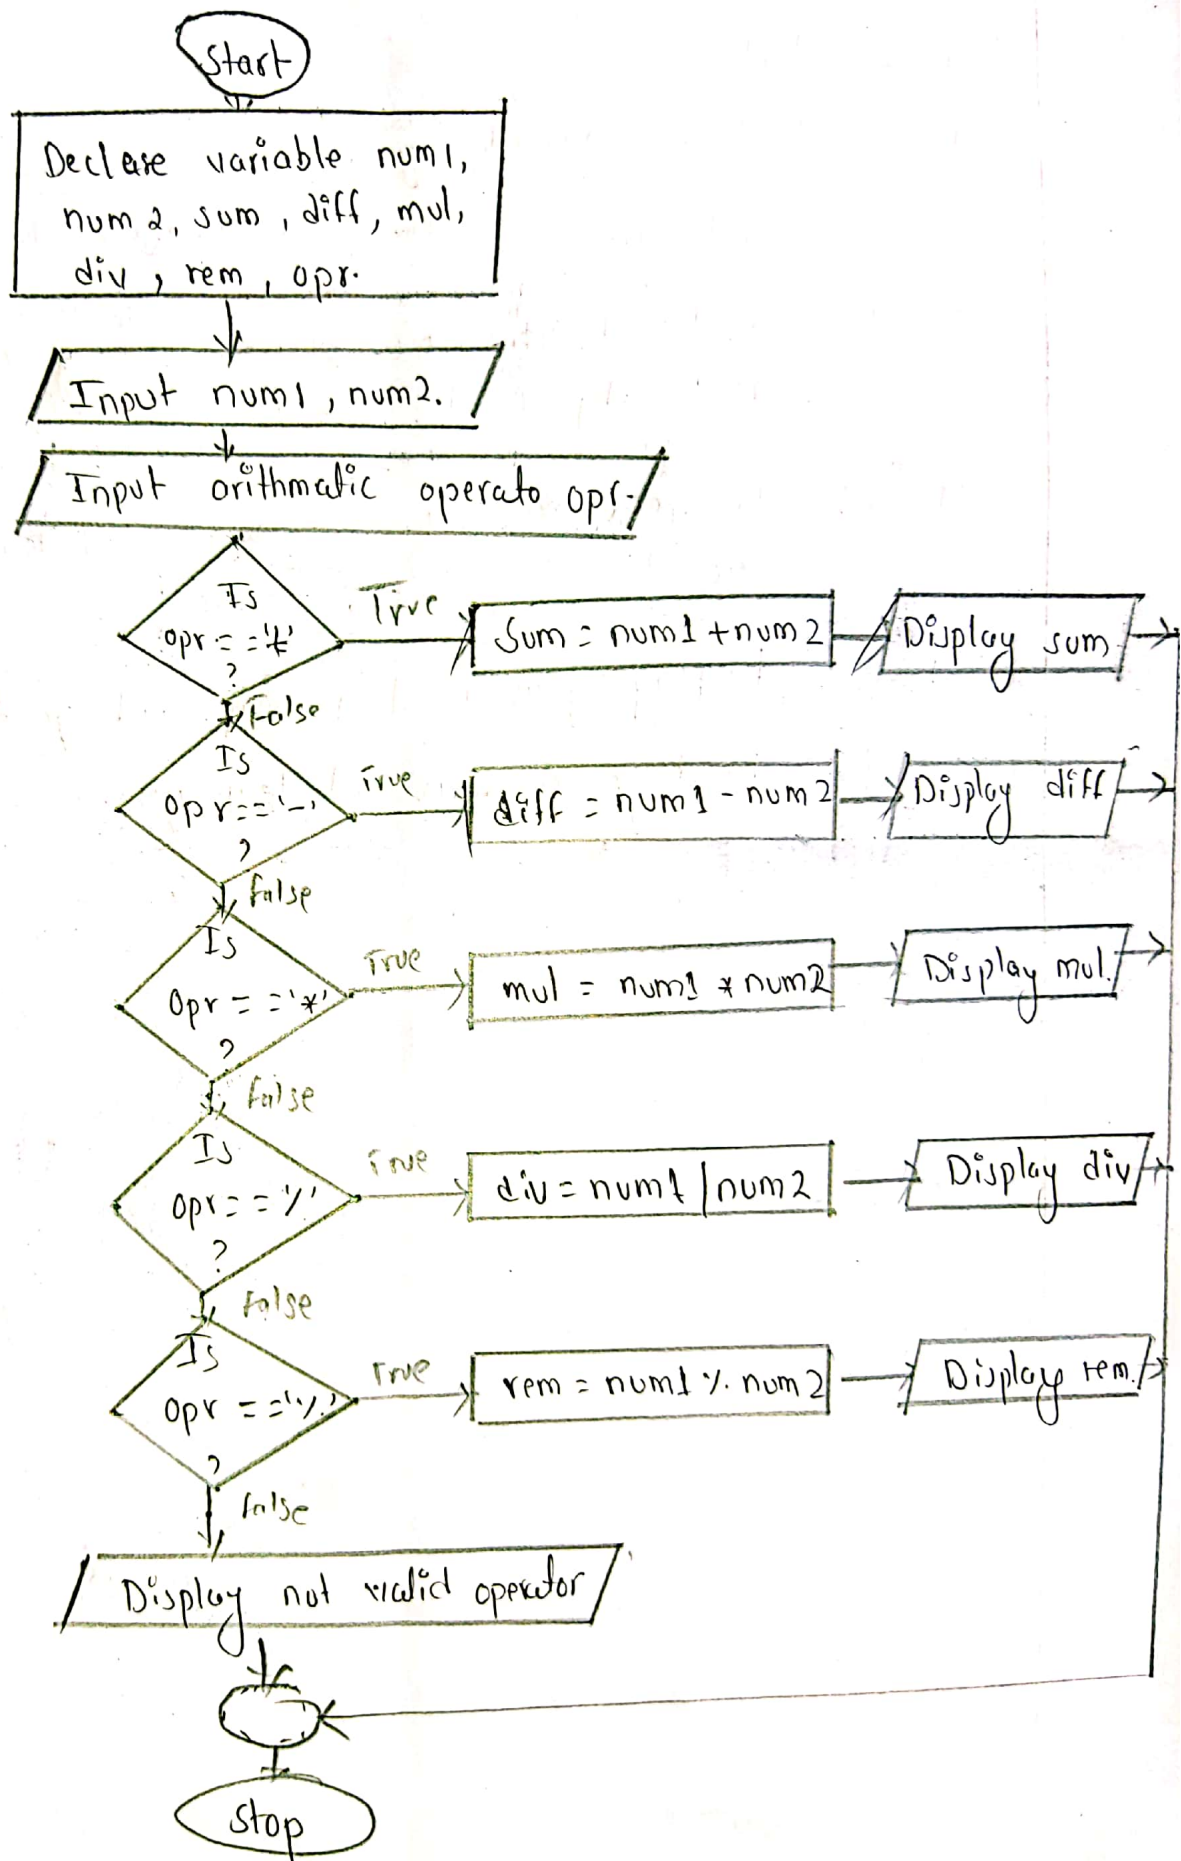 Start
Declare variable num1,
num2, sum, diff, mul,
div, rem, opr.
Input num1, num2.
Input arithmatic operato opr.
Is
opr=='+'
?
True
Sum = num1 + num2
Display sum
False
Is
opr=='-'
?
True
diff = num1 - num2
Display diff
False
Is
opr=='*'
?
True
mul = num1 * num2
Display mul.
False
Is
opr=='/'
?
True
div = num1 / num2
Display div
False
Is
opr=='%'
?
True
rem = num1 % num2
Display rem.
False
Display not valid operator
stop